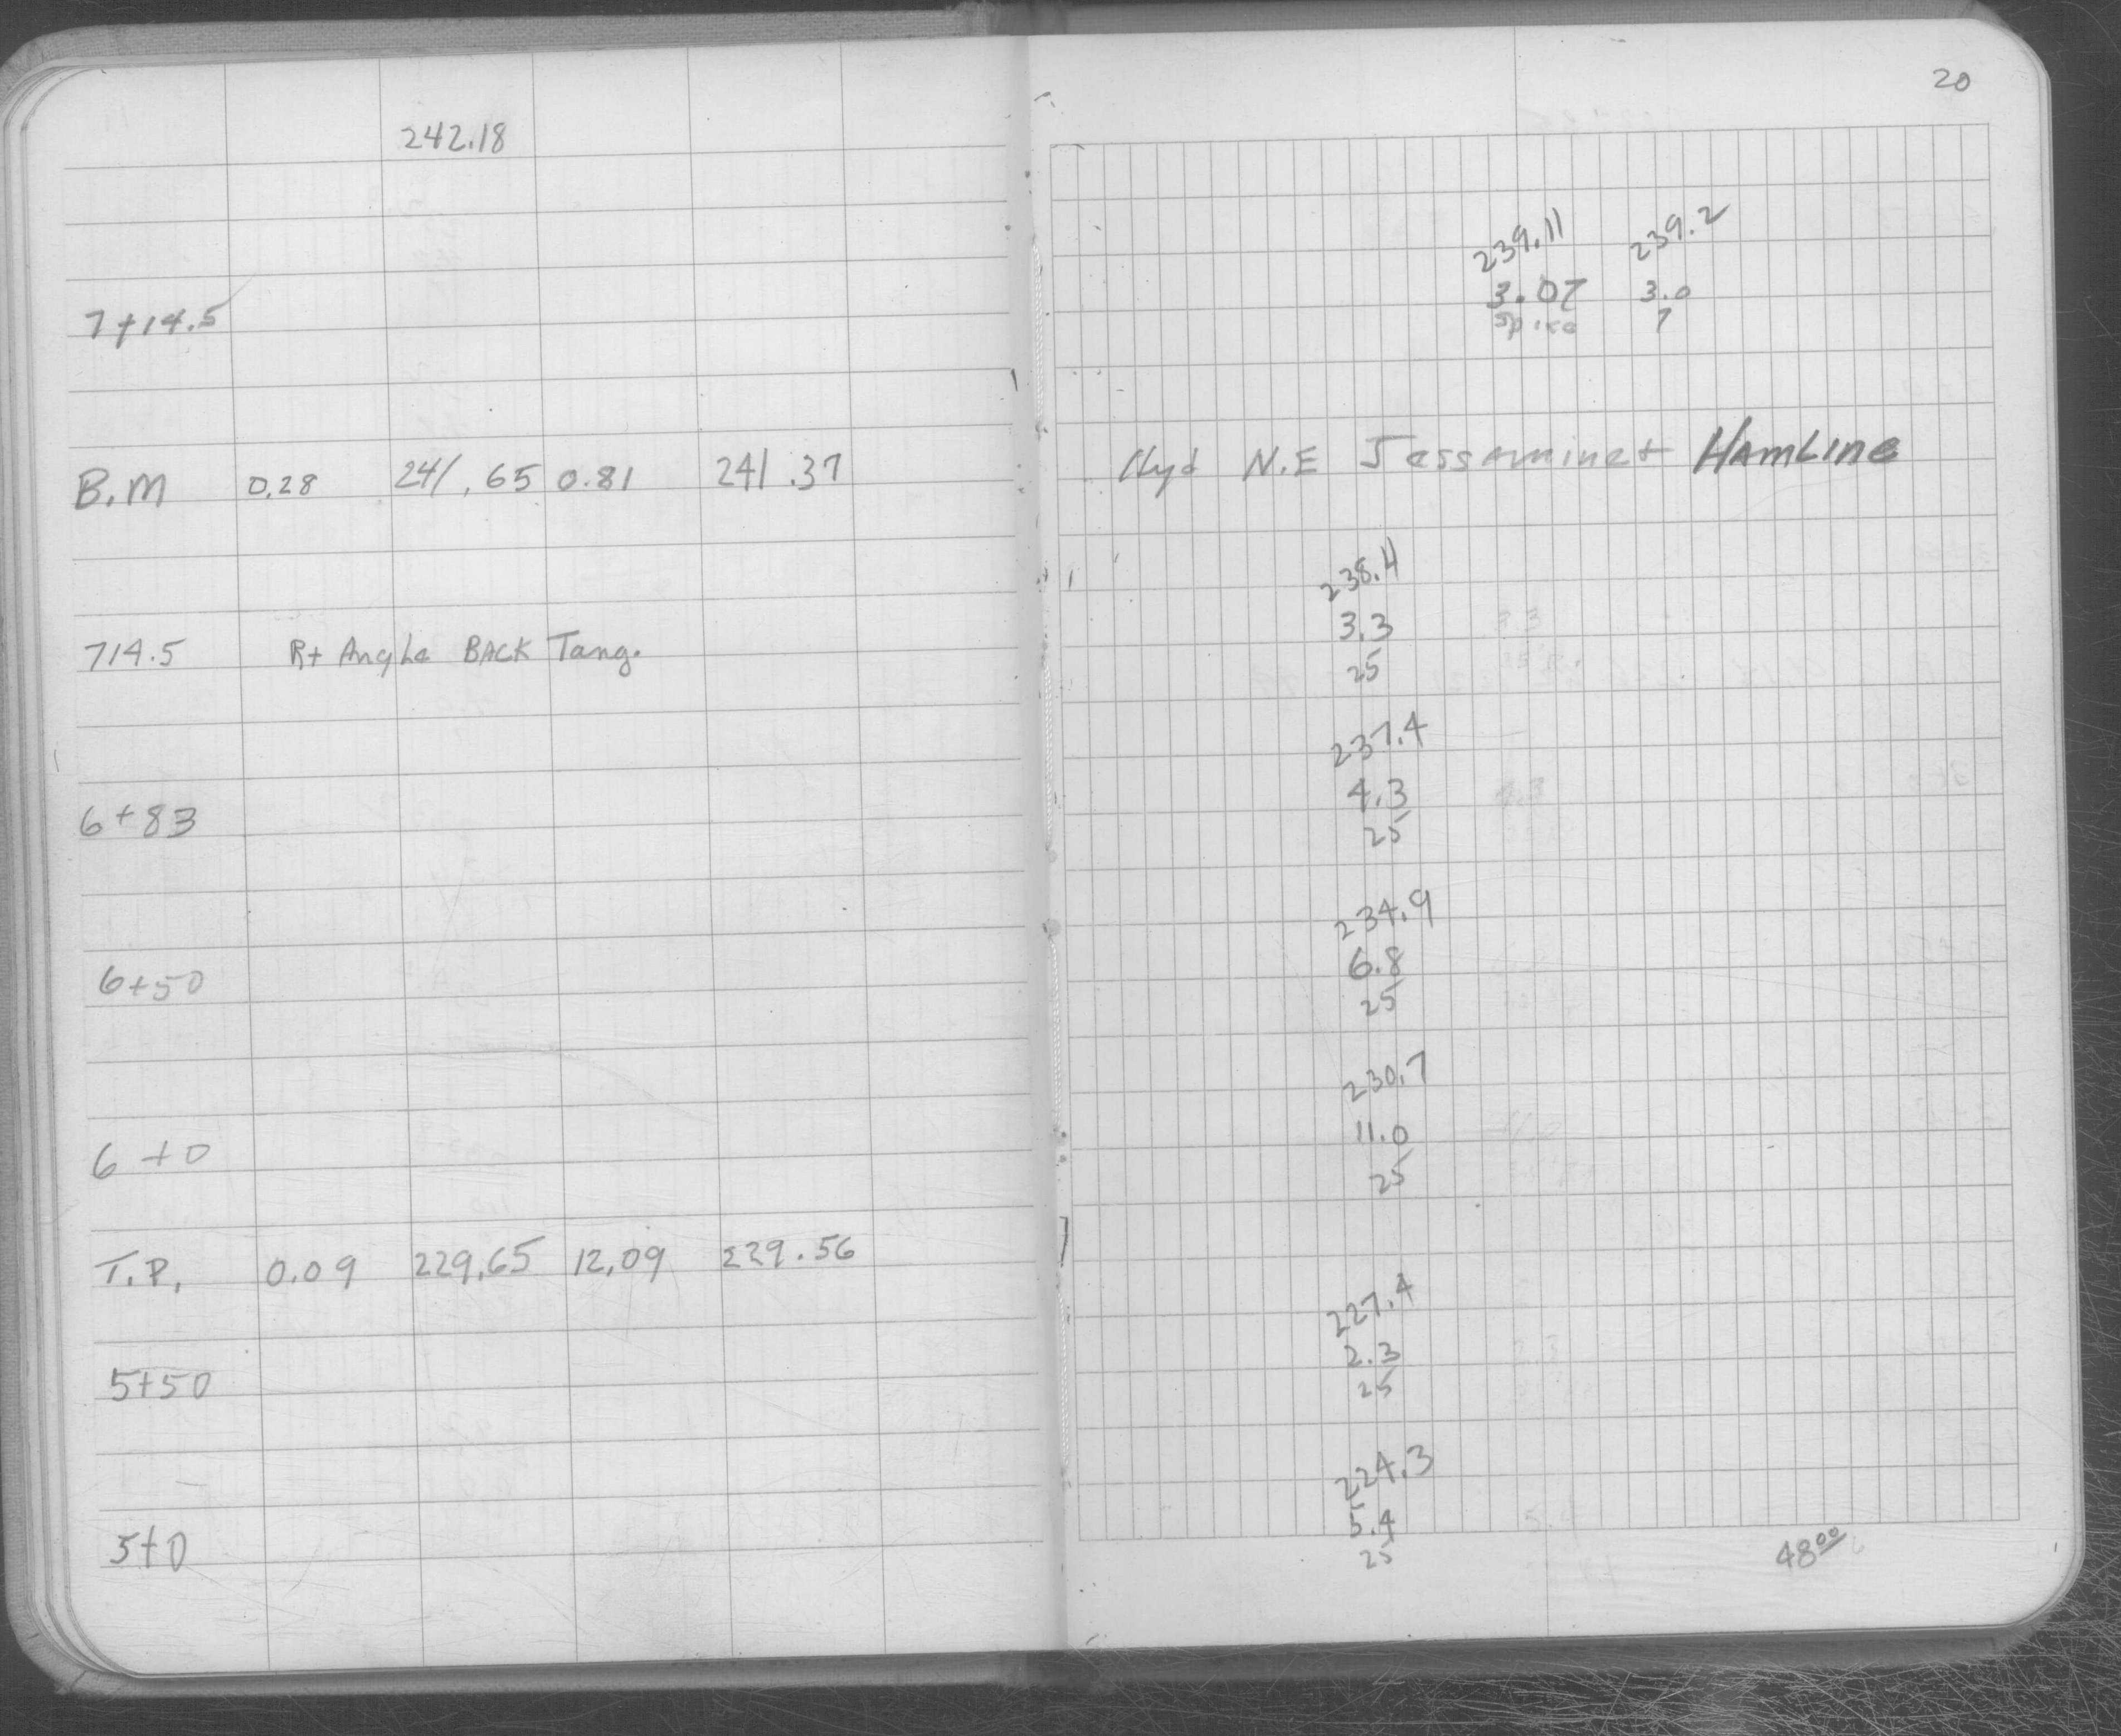 20
242.18
239.11 239.2
7+14.5 3.07 3.0
Spike 7
B.M 0.28 241.65 0.81 241.37 Hyd N.E Jessamine + HAMLINE
238.4
714.5 Rt Angle BACK Tang. 3.3
25
237.4
6+83 4.3
25
234.9
6+50 6.8
25
230.7
6+0 11.0
25
T.P. 0.09 229.65 12.09 229.56
227.4
5+50 2.3
25
224.3
5+0 5.4
25
48⁰⁰